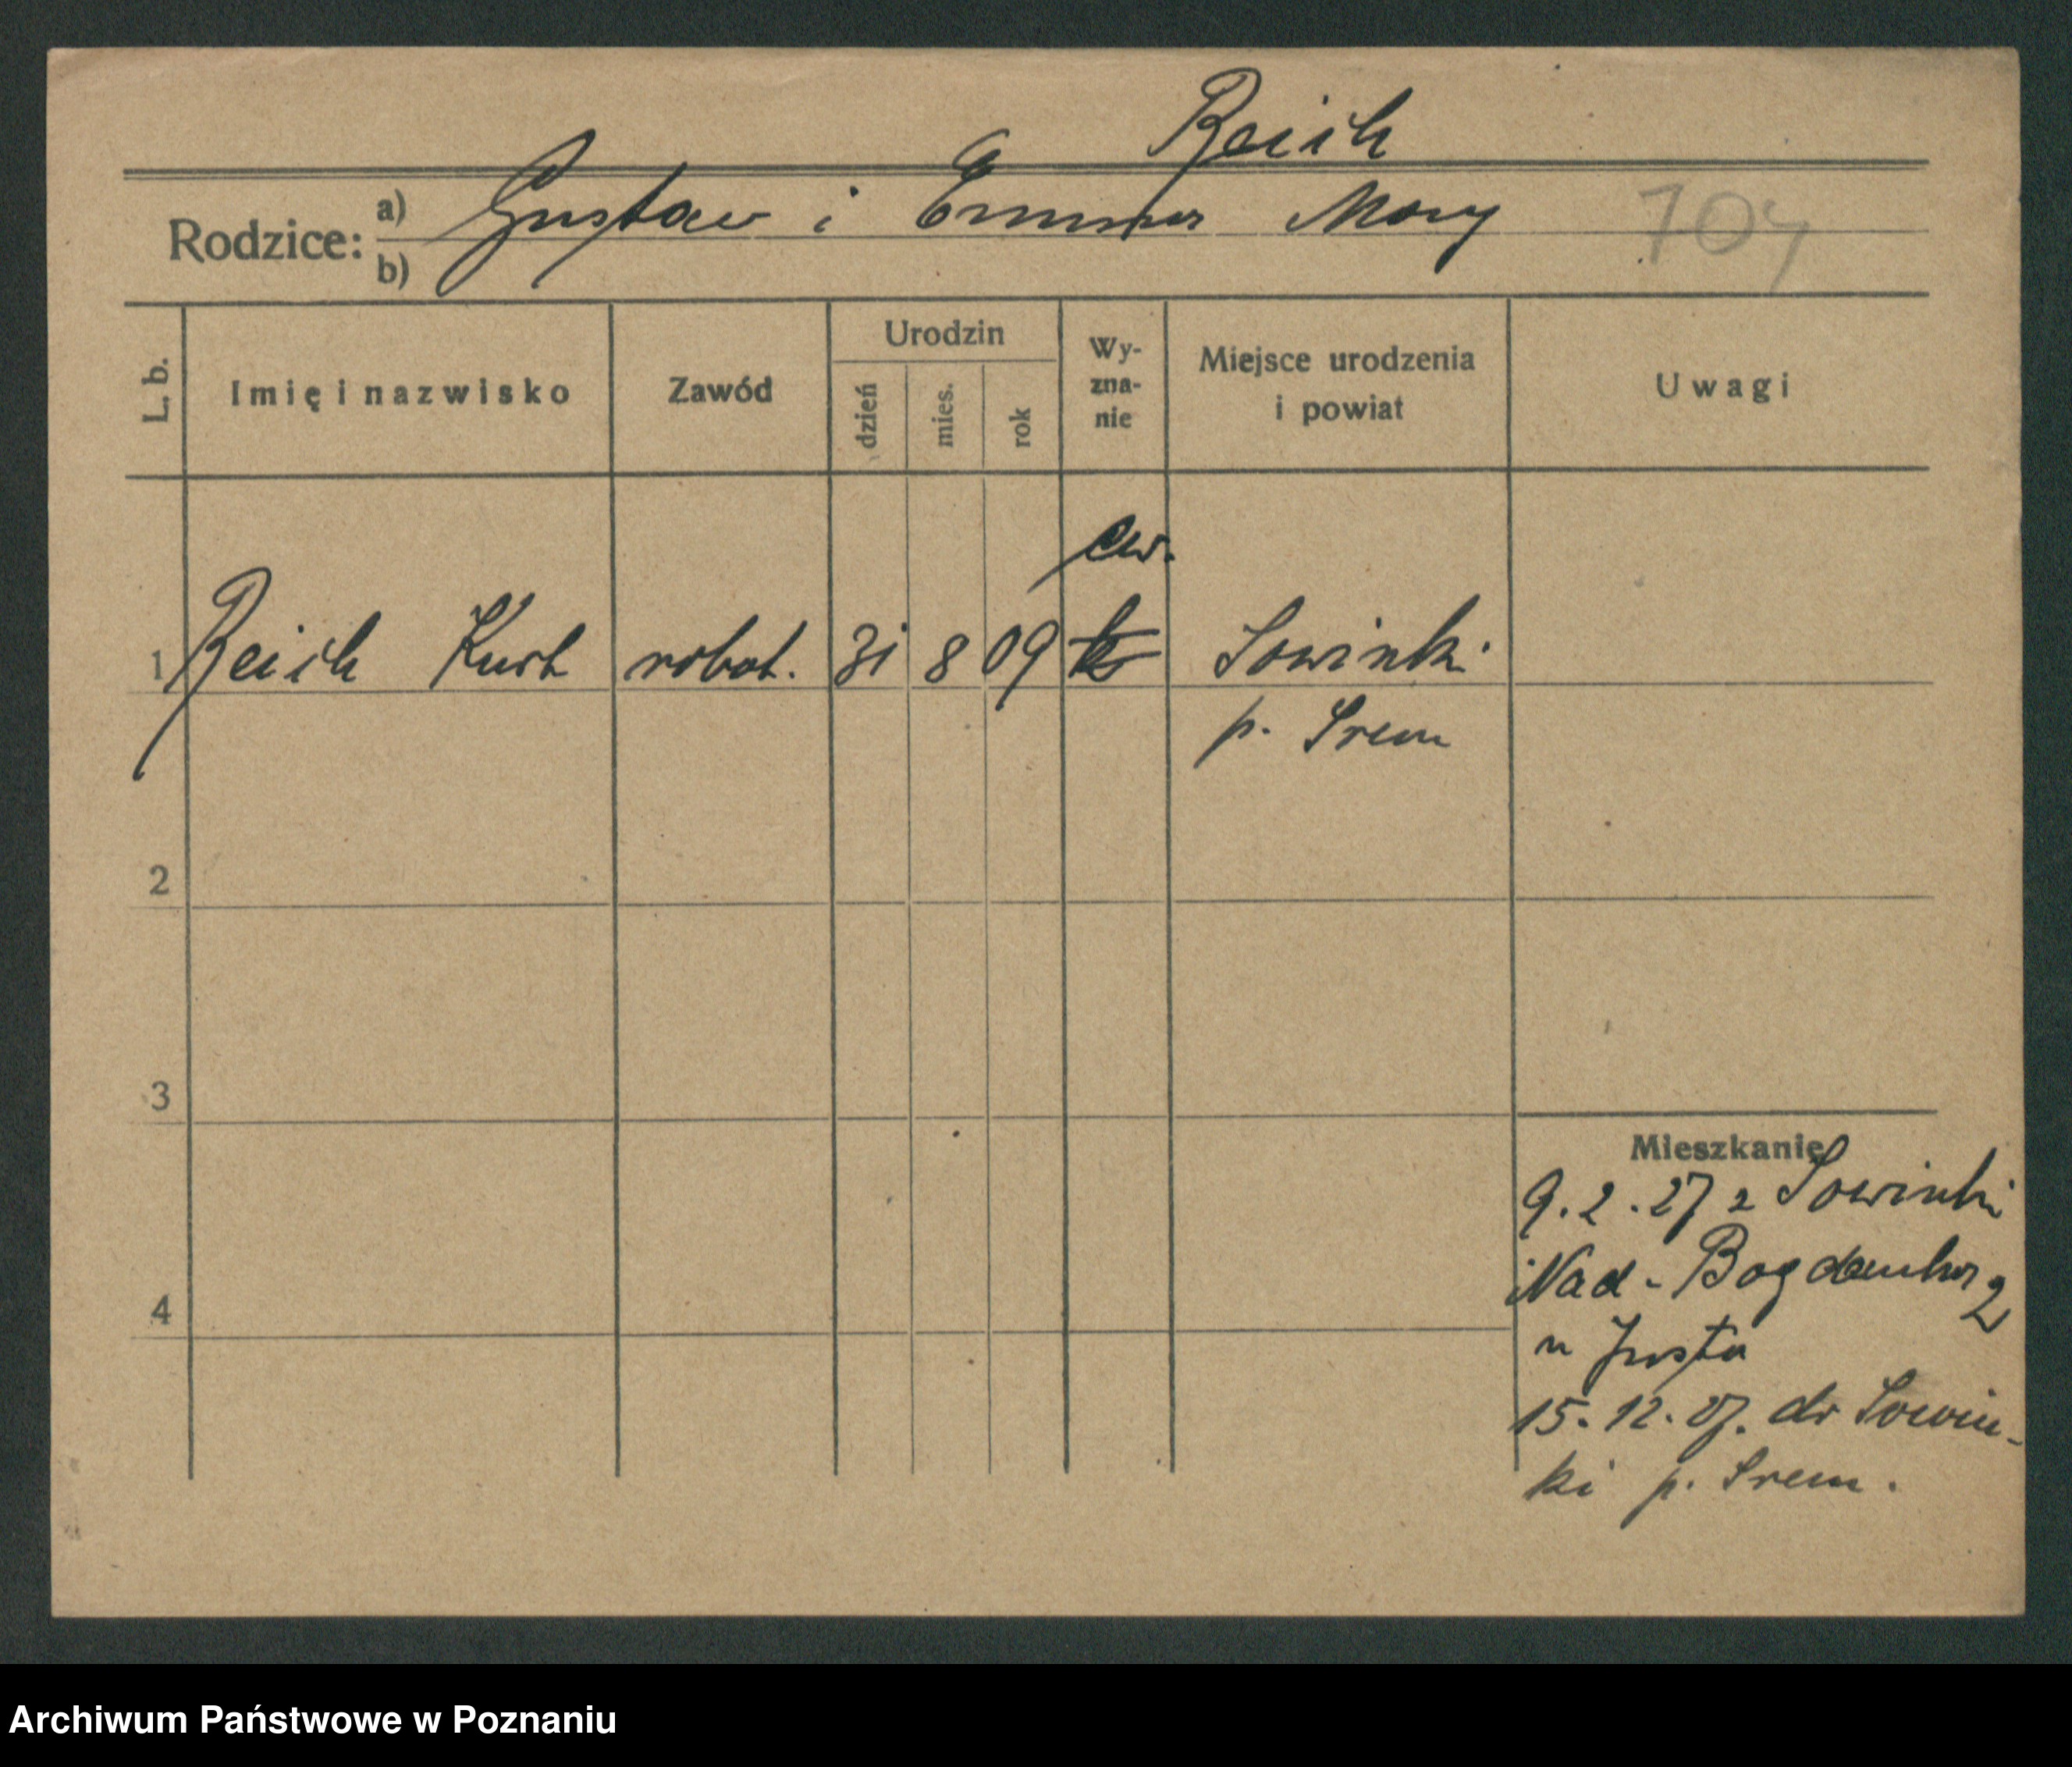 Reich
Rodzice: a) Gustaw i Emma Mary
b)
704
L. b.
Imię i nazwisko
Zawód
Urodzin
dzień
mies.
rok
Wy-
zna-
nie
Miejsce urodzenia
i powiat
Uwagi
ew.
1 Reich Kurt robot. 31 8 09 k Sowinki
p. Srem
2
3
4
Mieszkanie
9.2.27 z Sowinki
Nad-Bogdanką 2
u Justa
15.12.27. do Sowin-
ki p. Srem.
Archiwum Państwowe w Poznaniu